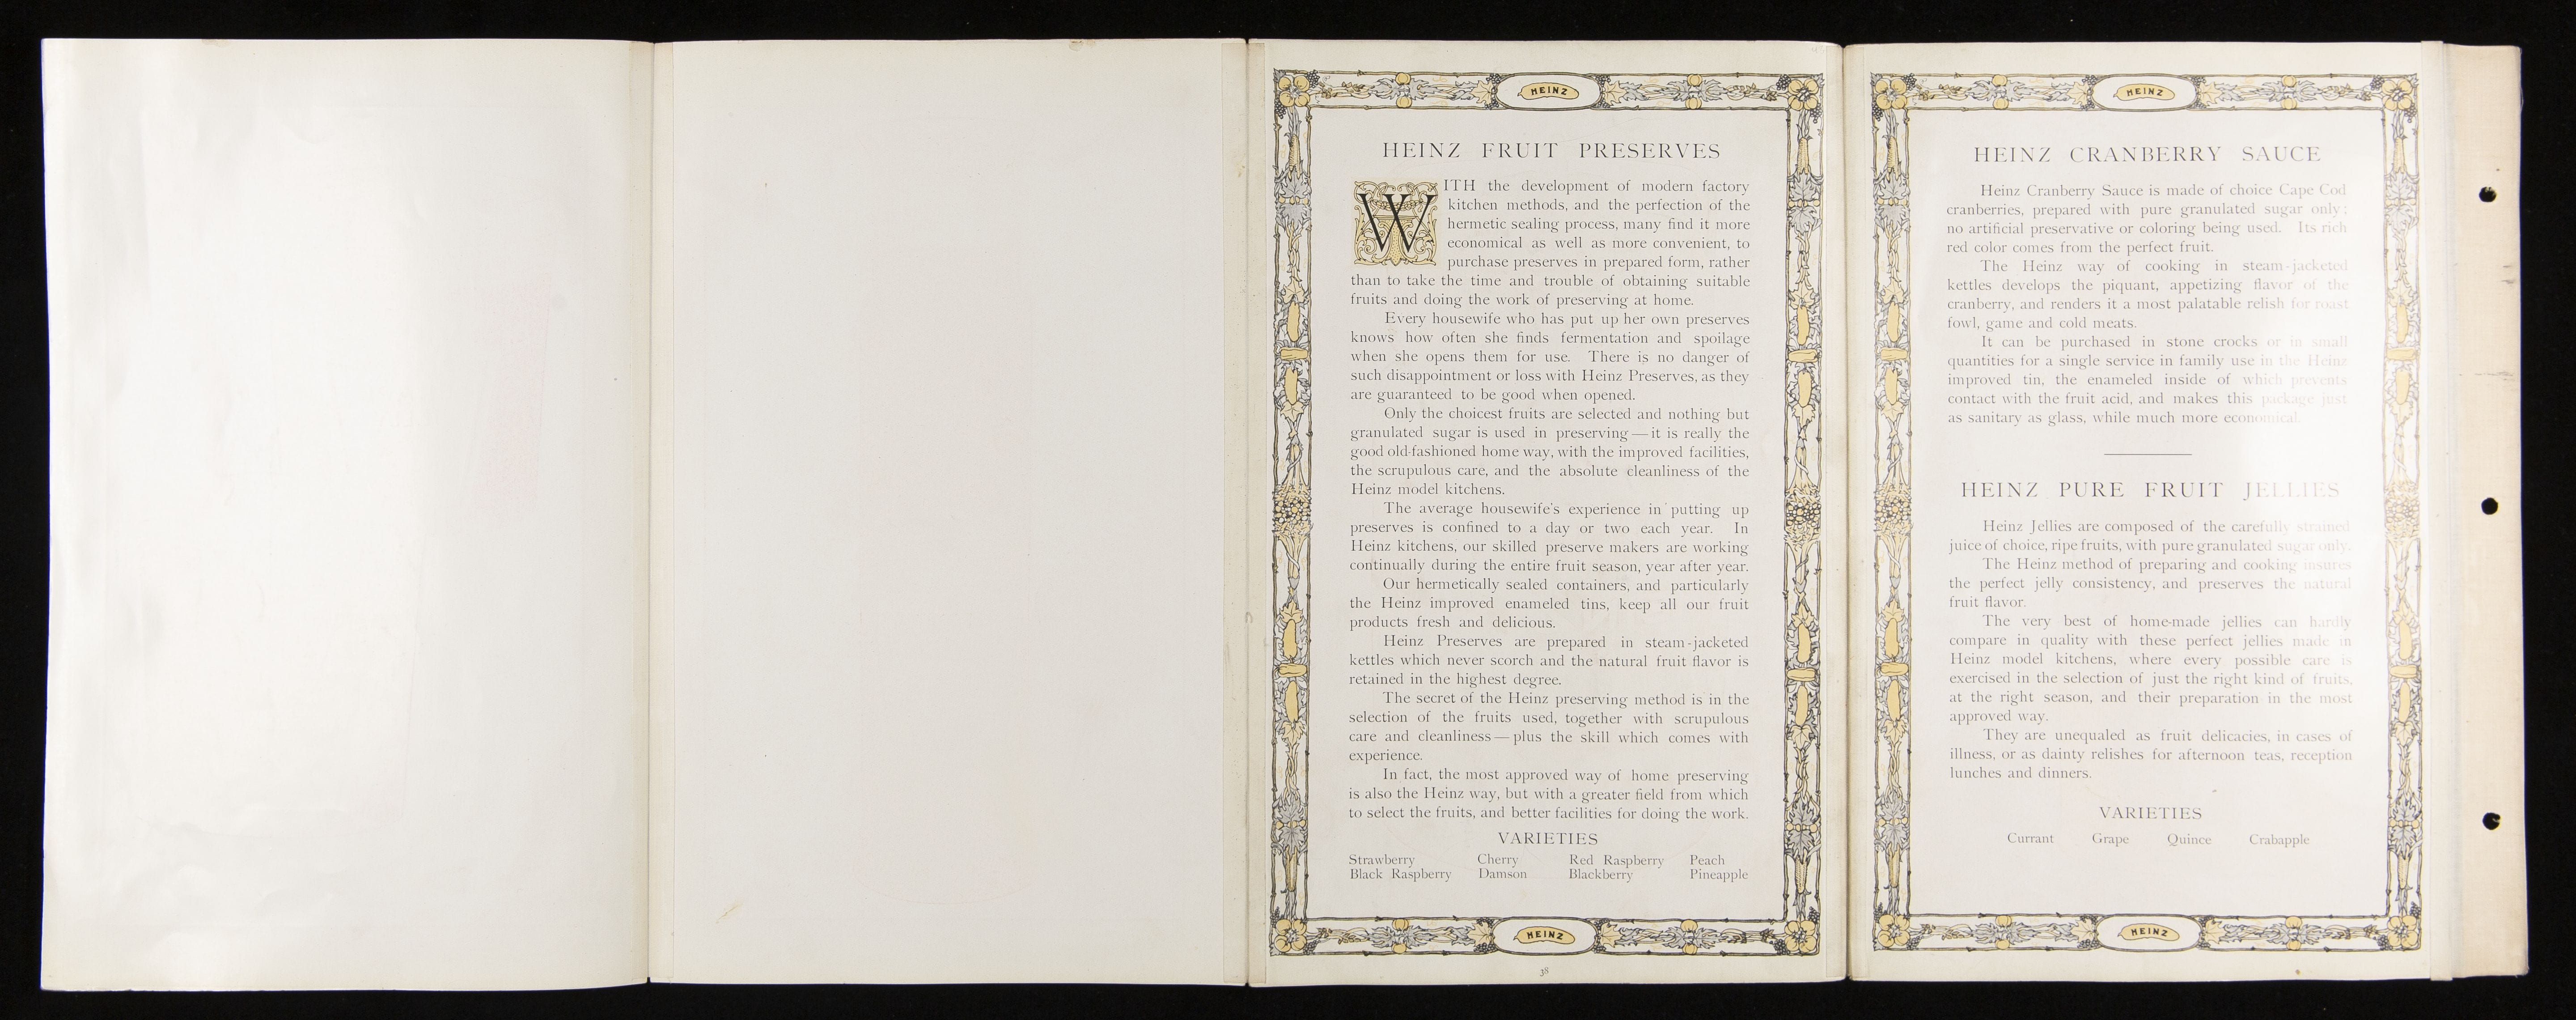 HEINZ
HEINZ FRUIT PRESERVES
WITH the development of modern factory
kitchen methods, and the perfection of the
hermetic sealing process, many find it more
economical as well as more convenient, to
purchase preserves in prepared form, rather
than to take the time and trouble of obtaining suitable
fruits and doing the work of preserving at home.
Every housewife who has put up her own preserves
knows how often she finds fermentation and spoilage
when she opens them for use. There is no danger of
such disappointment or loss with Heinz Preserves, as they
are guaranteed to be good when opened.
Only the choicest fruits are selected and nothing but
granulated sugar is used in preserving—it is really the
good old-fashioned home way, with the improved facilities,
the scrupulous care, and the absolute cleanliness of the
Heinz model kitchens.
The average housewife's experience in putting up
preserves is confined to a day or two each year. In
Heinz kitchens, our skilled preserve makers are working
continually during the entire fruit season, year after year.
Our hermetically sealed containers, and particularly
the Heinz improved enameled tins, keep all our fruit
products fresh and delicious.
Heinz Preserves are prepared in steam-jacketed
kettles which never scorch and the natural fruit flavor is
retained in the highest degree.
The secret of the Heinz preserving method is in the
selection of the fruits used, together with scrupulous
care and cleanliness—plus the skill which comes with
experience.
In fact, the most approved way of home preserving
is also the Heinz way, but with a greater field from which
to select the fruits, and better facilities for doing the work.
VARIETIES
Strawberry Cherry Red Raspberry Peach
Black Raspberry Damson Blackberry Pineapple
HEINZ
38
HEINZ
HEINZ CRANBERRY SAUCE
Heinz Cranberry Sauce is made of choice Cape Cod
cranberries, prepared with pure granulated sugar only;
no artificial preservative or coloring being used. Its rich
red color comes from the perfect fruit.
The Heinz way of cooking in steam-jacketed
kettles develops the piquant, appetizing flavor of the
cranberry, and renders it a most palatable relish for roast
fowl, game and cold meats.
It can be purchased in stone crocks or in small
quantities for a single service in family use in the Heinz
improved tin, the enameled inside of which prevents
contact with the fruit acid, and makes this package just
as sanitary as glass, while much more economical.
HEINZ PURE FRUIT JELLIES
Heinz Jellies are composed of the carefully strained
juice of choice, ripe fruits, with pure granulated sugar only.
The Heinz method of preparing and cooking insures
the perfect jelly consistency, and preserves the natural
fruit flavor.
The very best of home-made jellies can hardly
compare in quality with these perfect jellies made in
Heinz model kitchens, where every possible care is
exercised in the selection of just the right kind of fruits,
at the right season, and their preparation in the most
approved way.
They are unequaled as fruit delicacies, in cases of
illness, or as dainty relishes for afternoon teas, reception
lunches and dinners.
VARIETIES
Currant Grape Quince Crabapple
HEINZ